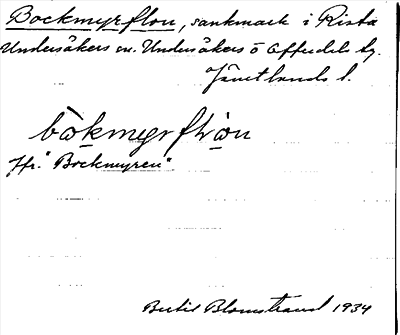 Bockmyrflon, sankmark i Rista
Undersåkers sn. Undersåkers o Offerdals tg.
Jämtlands l.
bòkmyrflón
Jfr. "Bockmyren"
Bertil Blomstrand 1934